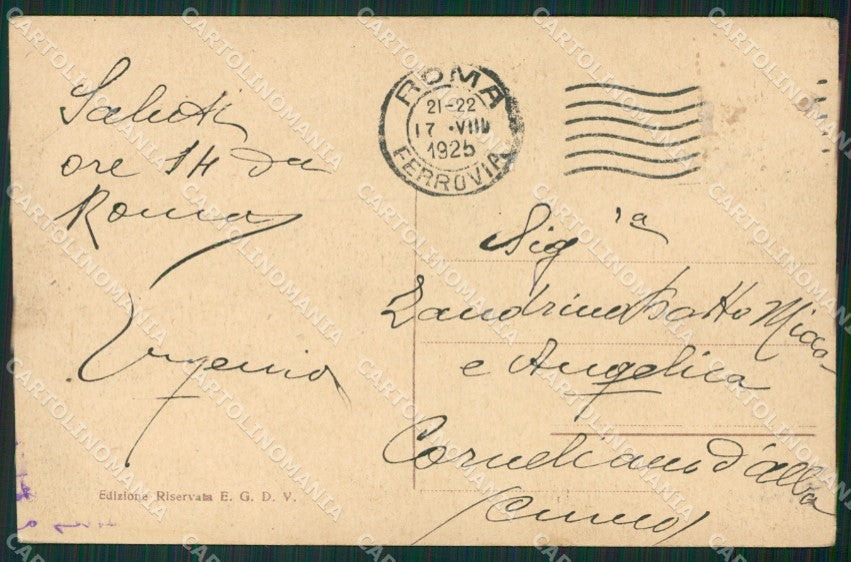 Saluti
ore 14 da
Roma
ROMA
21-22
17 · VIII
1925
FERROVIA
Sig ra
Sandrina Motto
e Angelica
Corneliano d'Alba
(Cuneo)
Edizione Riservata E. G. D. V.
CARTOLINOMANIA